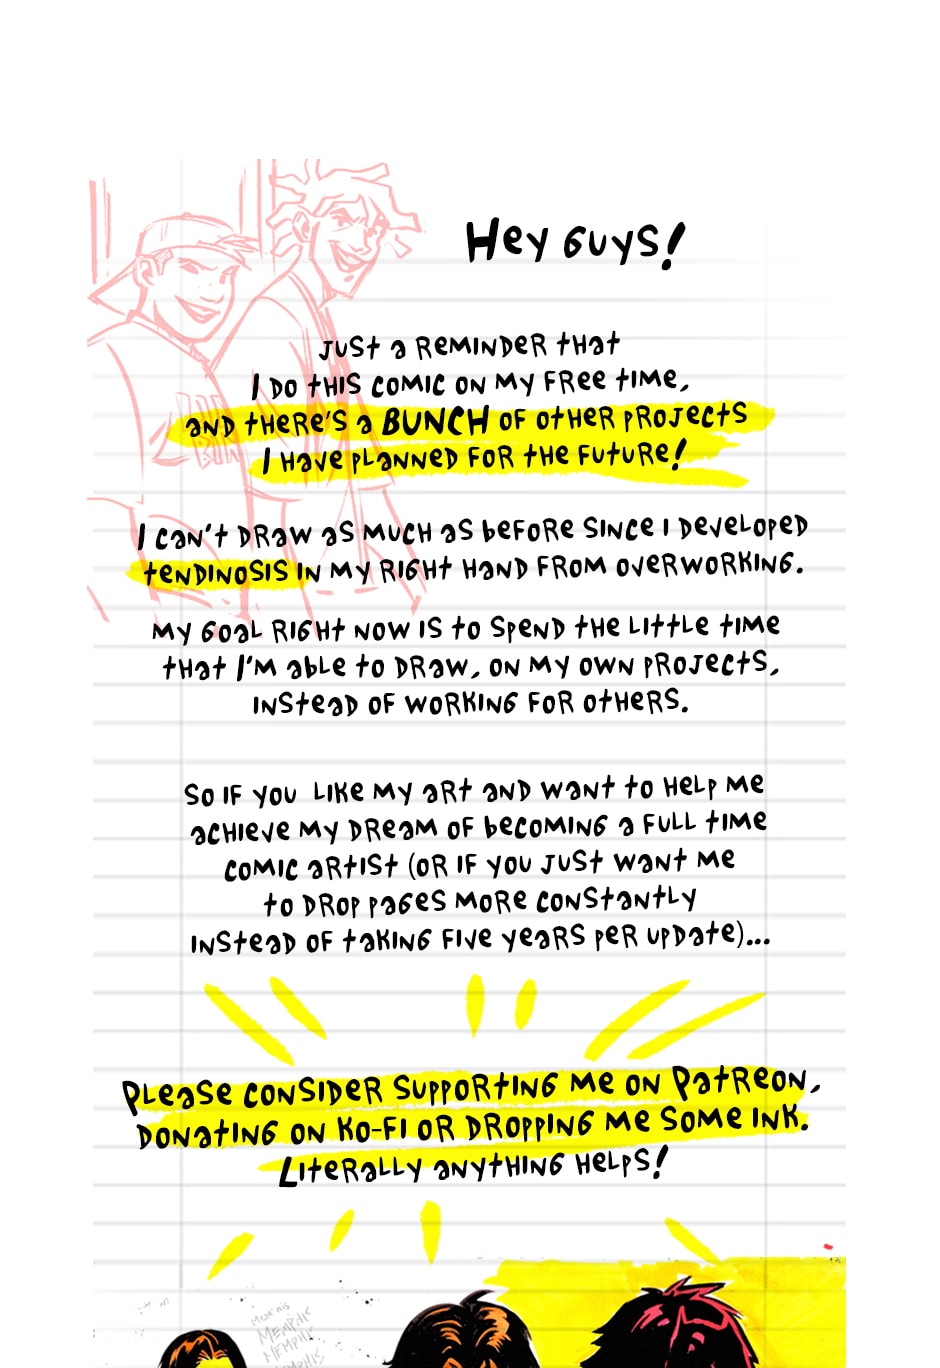 Hey guys!
Just a reminder that
I do this comic on my free time,
and there's a BUNCH of other projects
I have planned for the future!
I can't draw as much as before since I developed
tendinosis in my right hand from overworking.
My goal right now is to spend the little time
that I'm able to draw, on my own projects,
instead of working for others.
So if you like my art and want to help me
achieve my dream of becoming a full time
comic artist (or if you just want me
to drop pages more constantly
instead of taking five years per update)...
Please consider supporting me on Patreon,
donating on Ko-fi or dropping me some ink.
Literally anything helps!
MEMPHIS
MEMPHIS